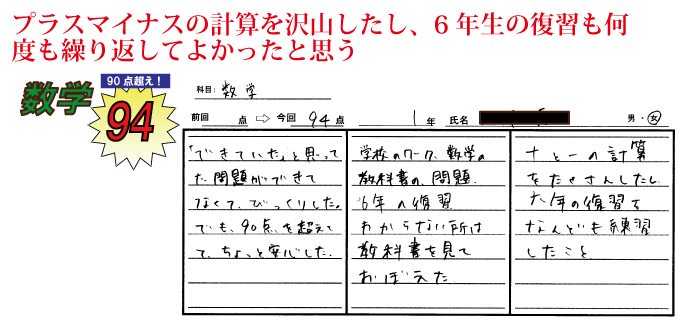 プラスマイナスの計算を沢山したし、6年生の復習も何
度も繰り返してよかったと思う
90点超え！
数学
94
科目: 数学
前回 点 ⇨ 今回 94 点 1 年 氏名 男・女
「できていた」と思って
た問題ができて
なくて、びっくりした。
でも、90点を超えて
て、ちょっと安心した。
学校のワーク、数学の
教科書の、問題、
6年の復習
わからない所は
教科書を見て
おぼえた
+と-の計算
をたくさんしたし、
六年の復習を
なんども練習
したこと